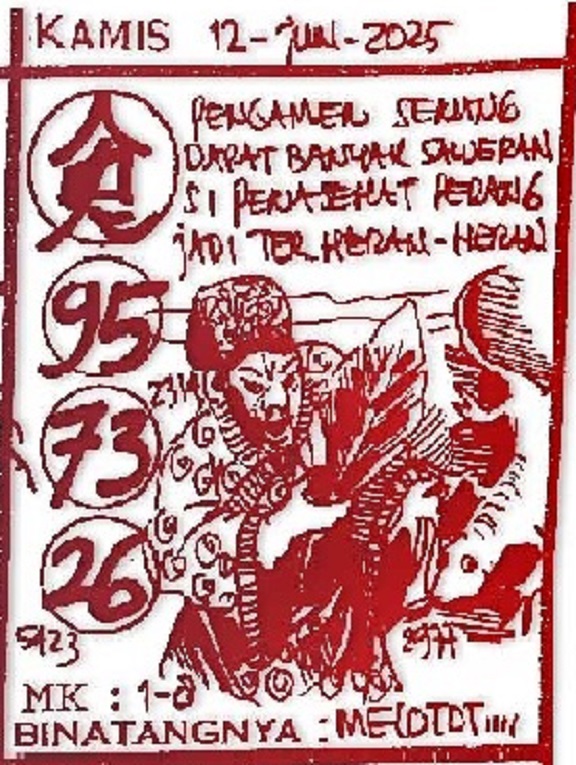 KAMIS 12-JUN-2025
PENGAMEN SERUNG
DAPAT BANYAK SAWERAN
SI PENASEHAT PERANG
JADI TERHERAN-HERAN
95
73
26
MK : 1-8
BINATANGNYA : MELOTOT